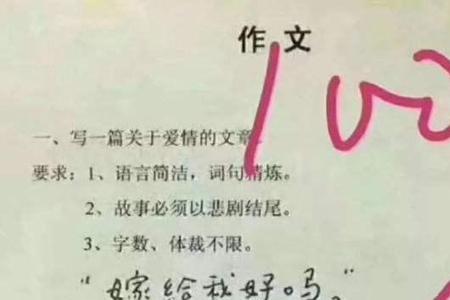 作文
100
一、写一篇关于爱情的文章。
要求：1、语言简洁，词句精炼。
2、故事必须以悲剧结尾。
3、字数、体裁不限。
“嫁给我好吗。”